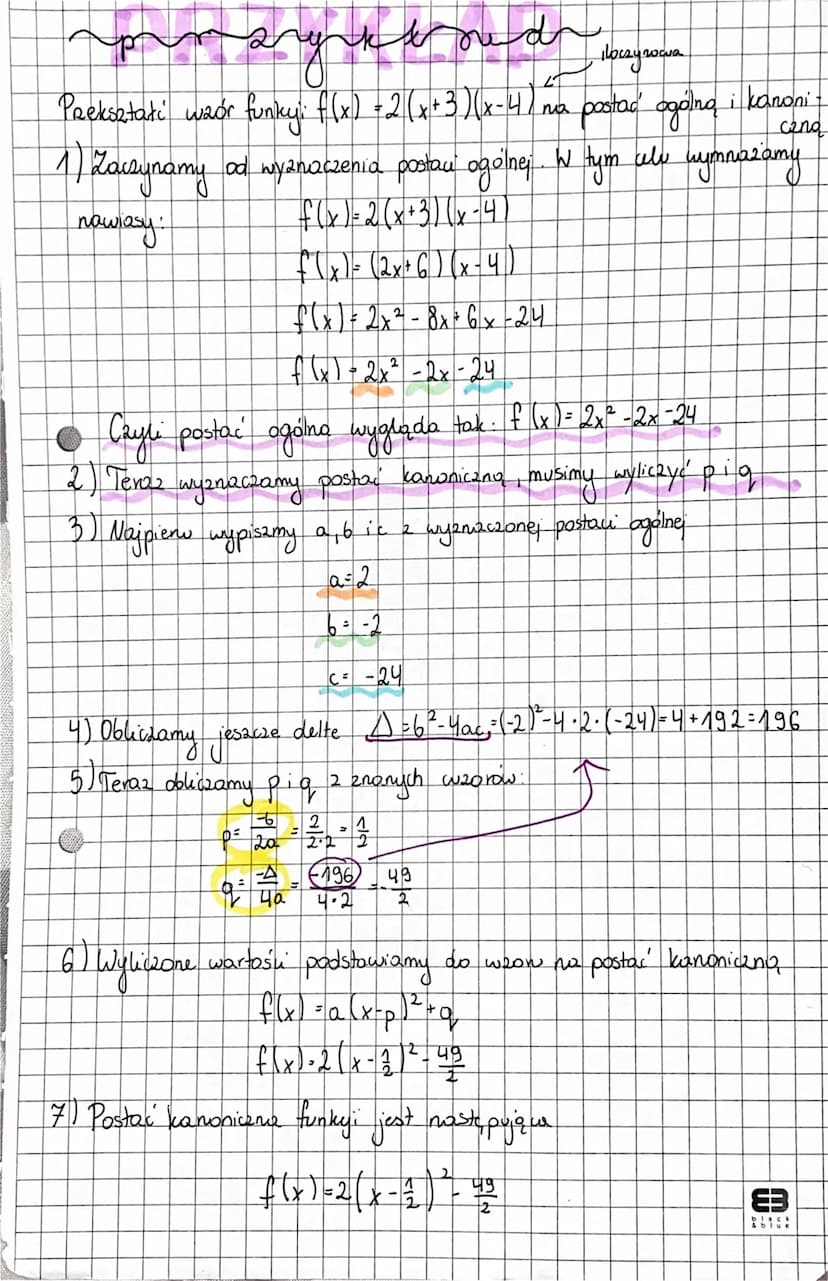 PRZYKŁAD
przykład
iloczynowa
Przekształć wzór funkcji f(x) = 2(x+3)(x-4) na postać ogólną i kanoni-
czną
1) Zaczynamy od wyznaczenia postaci ogólnej. W tym celu wymnażamy
nawiasy:
f(x) = 2(x+3)(x-4)
f(x) = (2x+6)(x-4)
f(x) = 2x² - 8x + 6x - 24
f(x) = 2x² - 2x - 24
Czyli postać ogólna wygląda tak: f(x) = 2x² - 2x - 24
2) Teraz wyznaczamy postać kanoniczną, musimy wyliczyć p i q
3) Najpierw wypiszmy a, b i c z wyznaczonej postaci ogólnej
a = 2
b = -2
c = -24
4) Obliczamy jeszcze delte Δ = b² - 4ac = (-2)² - 4·2·(-24) = 4 + 192 = 196
5) Teraz obliczamy p i q z znanych wzorów:
p = -b/2a = 2/2·2 = 1/2
q = -Δ/4a = -196/4·2 = -49/2
6) Wyliczone wartości podstawiamy do wzoru na postać kanoniczną
f(x) = a(x-p)² + q
f(x) = 2(x - 1/2)² - 49/2
7) Postać kanoniczna funkcji jest następująca
f(x) = 2(x - 1/2)² - 49/2
black
&blue